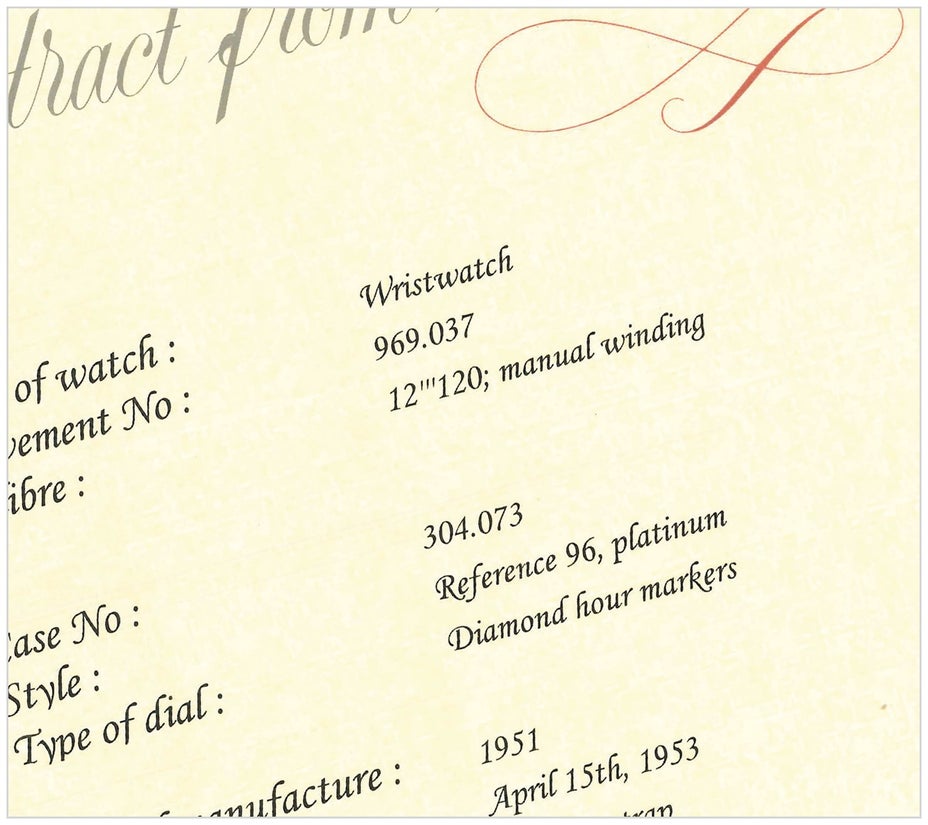 tract from
of watch : Wristwatch
vement No : 969.037
ibre : 12'''120; manual winding
ase No : 304.073
Style : Reference 96, platinum
Type of dial : Diamond hour markers
manufacture : 1951
April 15th, 1953